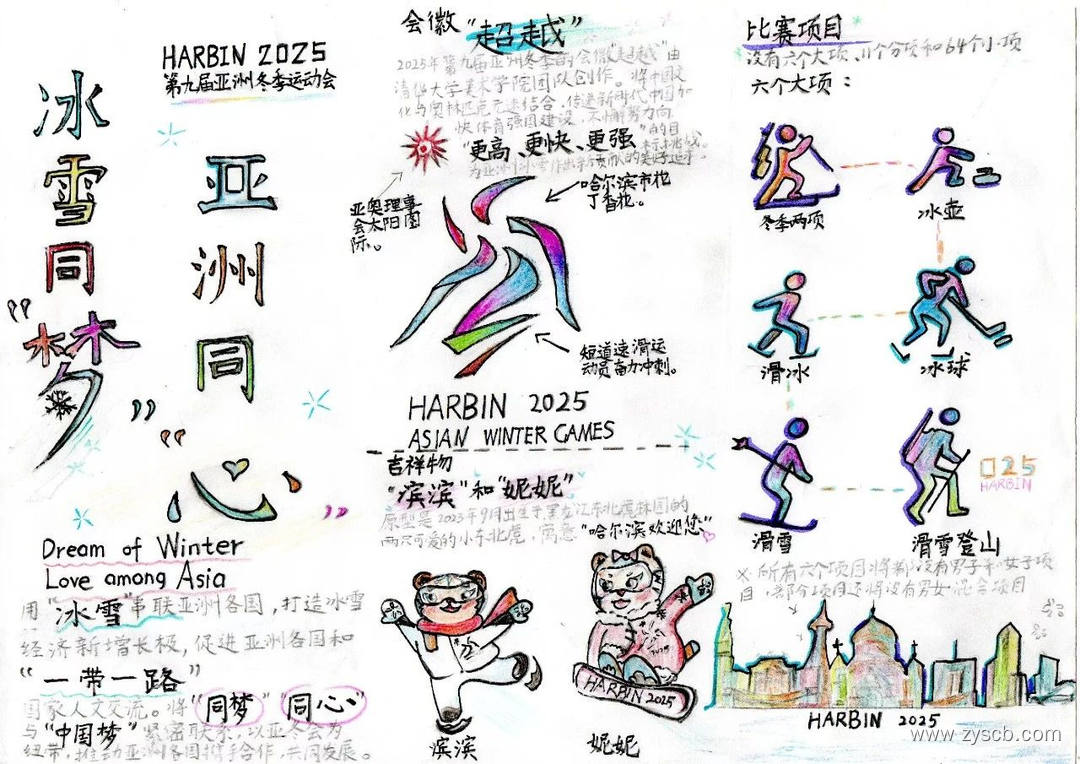 HARBIN 2025
第九届亚洲冬季运动会
冰雪同
“梦”
亚洲同
“心”
Dream of Winter
Love among Asia
用“冰雪”串联亚洲各国，打造冰雪
经济新增长极，促进亚洲各国和
“一带一路”
国家人文交流。将“同梦”“同心”
与“中国梦”紧密联系，以亚冬会为
纽带，推动亚洲各国携手合作，共同发展。
会徽“超越”
2025年第九届亚洲冬季的会徽“超越”由
清华大学美术学院团队创作。将中国文
化与奥林匹克元速结合，传递新时代中国加
快体育强国建设，不懈努力向
“更高、更快、更强”的目
亚奥理事
会太阳图
际。
哈尔滨市花
丁香花。
短道速滑运
动员奋力冲刺。
HARBIN 2025
ASIAN WINTER GAMES
吉祥物
“滨滨”和“妮妮”
原型是2023年9月出生于黑龙江东北虎林园的
两只可爱的小东北虎，寓意“哈尔滨欢迎您”
HARBIN 2025
滨滨
妮妮
比赛项目
设有六个大项、11个分项和64个小项
六个大项：
冬季两项
冰壶
滑冰
冰球
滑雪
滑雪登山
025
HARBIN
※所有六个项目将都设有男子和女子项
目，部分项目还将设有男女混合项目
HARBIN 2025
www.zyscb.com